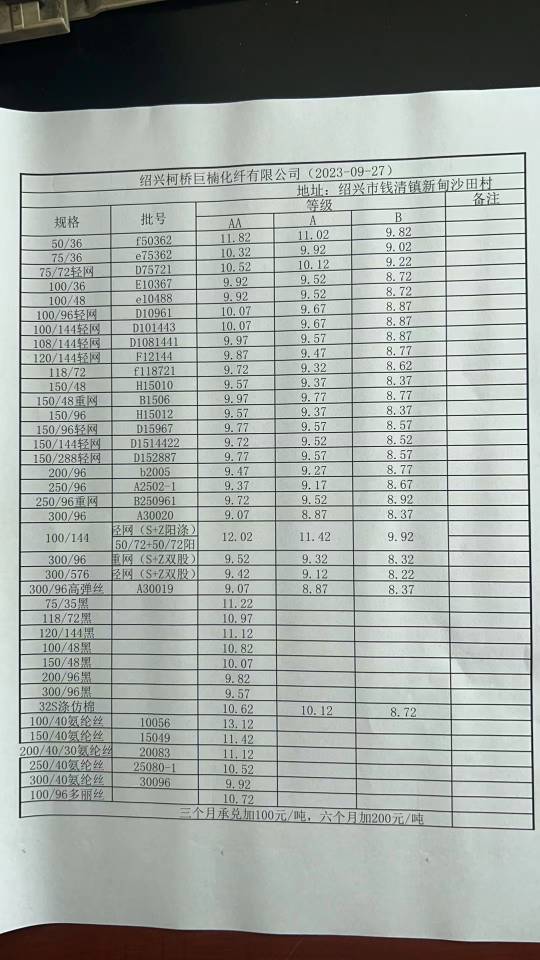 绍兴柯桥巨楠化纤有限公司（2023-09-27）
地址：绍兴市钱清镇新甸沙田村
规格 批号 等级 备注
AA A B
50/36 f50362 11.82 11.02 9.82
75/36 e75362 10.32 9.92 9.02
75/72轻网 D75721 10.52 10.12 9.22
100/36 E10367 9.92 9.52 8.72
100/48 e10488 9.92 9.52 8.72
100/96轻网 D10961 10.07 9.67 8.87
100/144轻网 D101443 10.07 9.67 8.87
108/144轻网 D1081441 9.97 9.57 8.87
120/144轻网 F12144 9.87 9.47 8.77
118/72 f118721 9.72 9.32 8.62
150/48 H15010 9.57 9.37 8.37
150/48重网 B1506 9.97 9.77 8.77
150/96 H15012 9.57 9.37 8.37
150/96轻网 D15967 9.77 9.57 8.57
150/144轻网 D1514422 9.72 9.52 8.52
150/288轻网 D152887 9.77 9.57 8.57
200/96 b2005 9.47 9.27 8.77
250/96 A2502-1 9.37 9.17 8.67
250/96重网 B250961 9.72 9.52 8.92
300/96 A30020 9.07 8.87 8.37
100/144 轻网（S+Z阳涤） 12.02 11.42 9.92
50/72+50/72阳
300/96 重网（S+Z双股） 9.52 9.32 8.32
300/576 轻网（S+Z双股） 9.42 9.12 8.22
300/96高弹丝 A30019 9.07 8.87 8.37
75/35黑 11.22
118/72黑 10.97
120/144黑 11.12
100/48黑 10.82
150/48黑 10.07
200/96黑 9.82
300/96黑 9.57
32S涤仿棉 10.62 10.12 8.72
100/40氨纶丝 10056 13.12
150/40氨纶丝 15049 11.42
200/40/30氨纶丝 20083 11.12
250/40氨纶丝 25080-1 10.52
300/40氨纶丝 30096 9.92
100/96多丽丝 10.72
三个月承兑加100元/吨，六个月加200元/吨